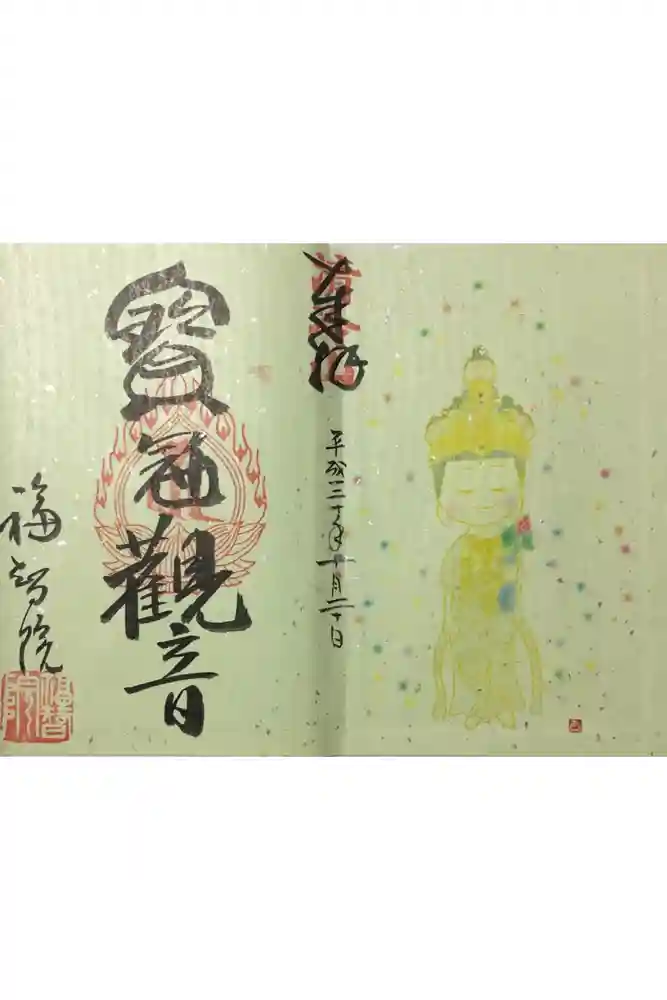 奉拝
平成三十年十月二十日
寶冠觀音
福智院
福智院